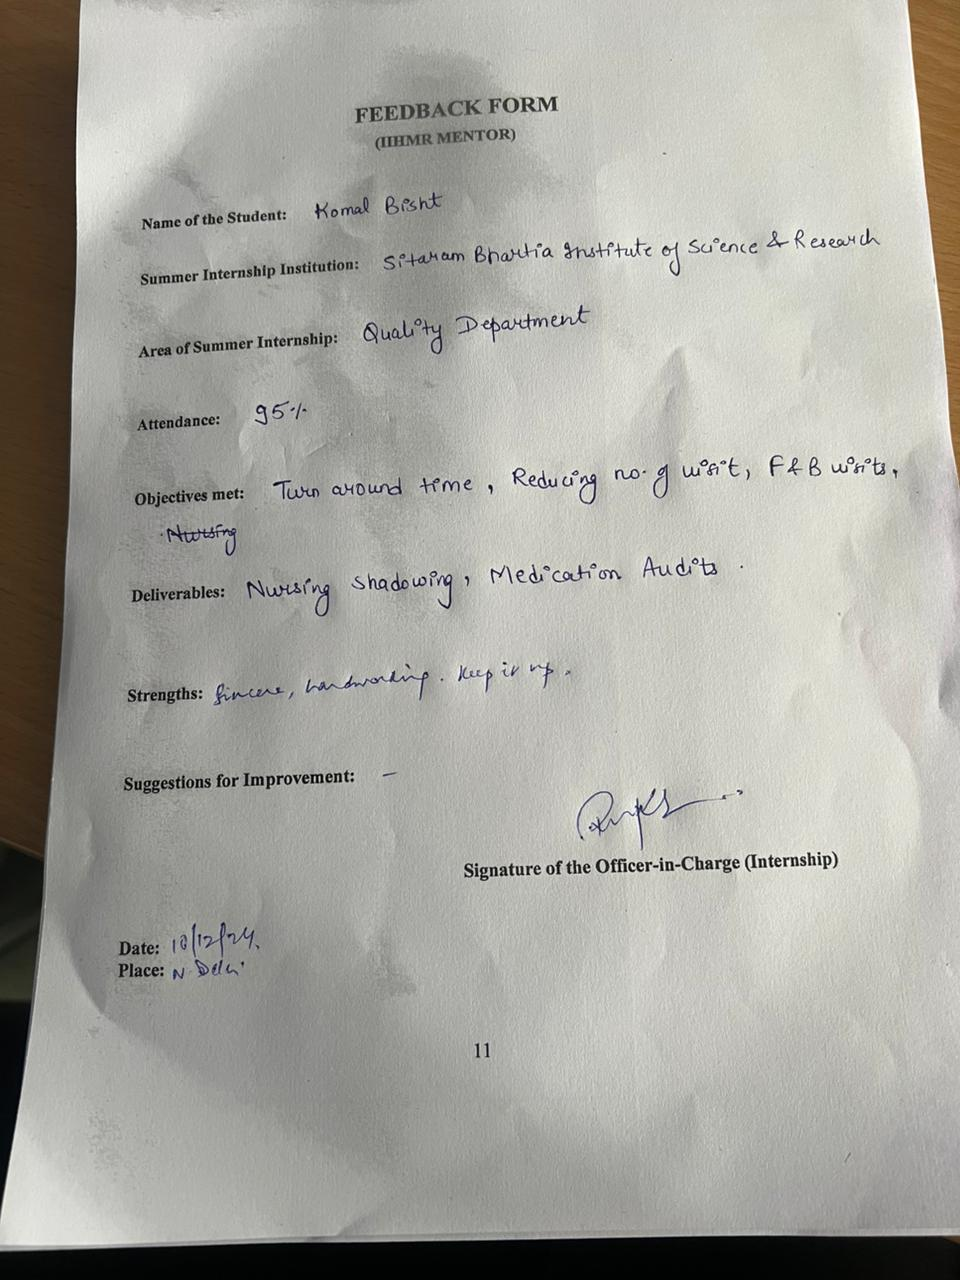 FEEDBACK FORM
(IIHMR MENTOR)
Name of the Student: Komal Bisht
Summer Internship Institution: Sitaram Bhartia Institute of Science & Research
Area of Summer Internship: Quality Department
Attendance: 95%
Objectives met: Turn around time, Reducing no. of visit, F & B visits,
Nursing
Deliverables: Nursing Shadowing, Medication Audits.
Strengths: Sincere, hardworking. Keep it up.
Suggestions for Improvement: -
Signature of the Officer-in-Charge (Internship)
Date: 10/12/24.
Place: N. Delhi
11